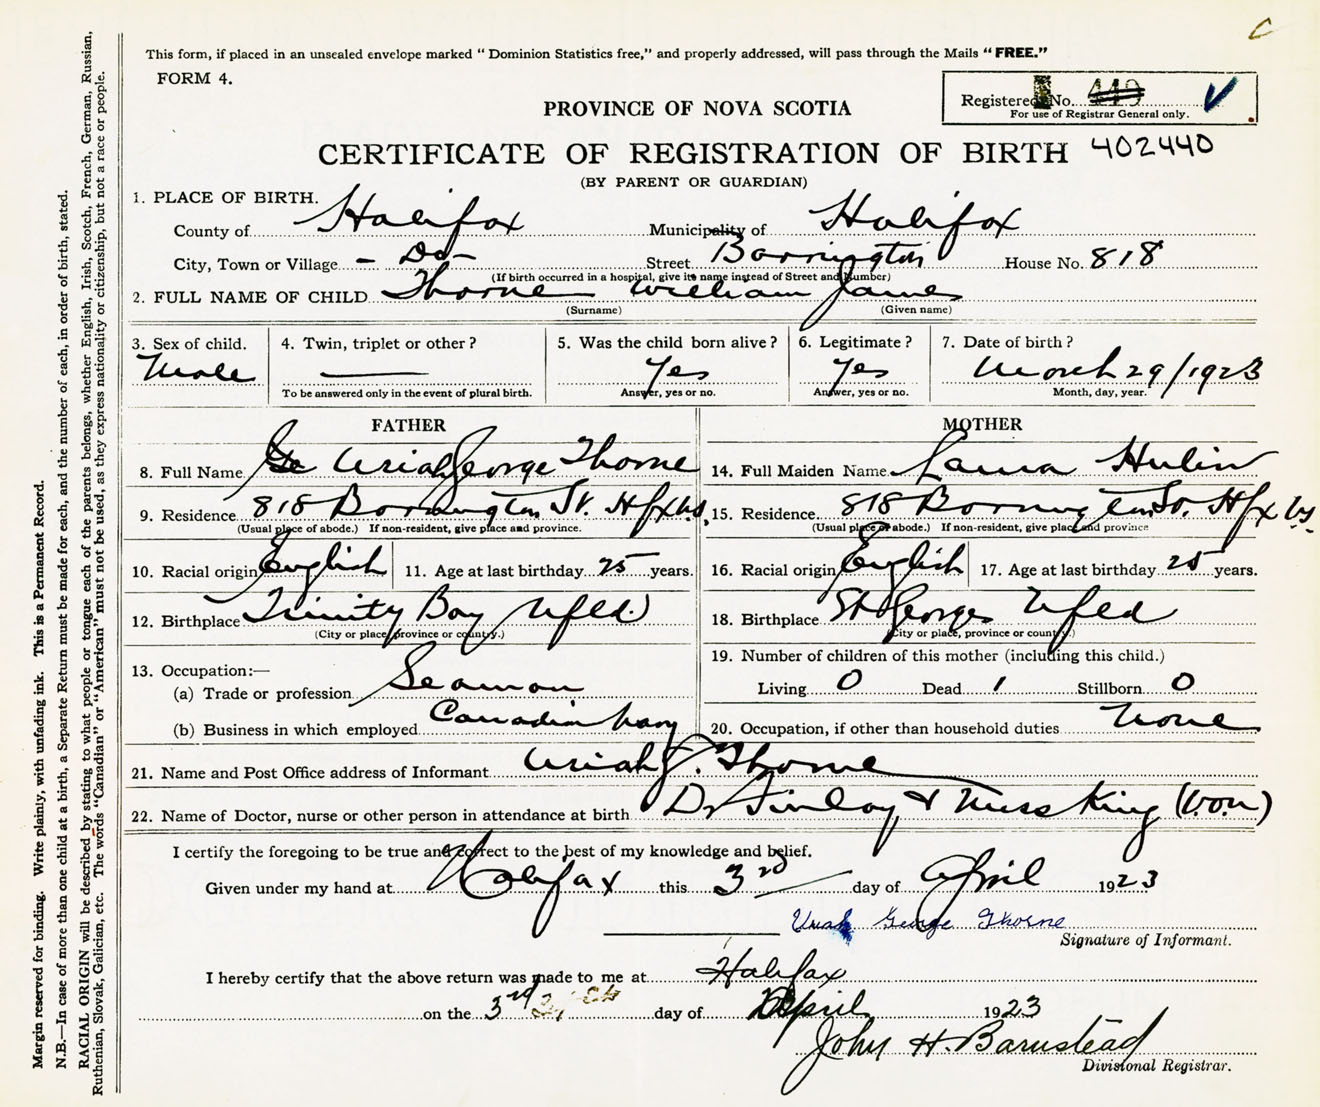 C
This form, if placed in an unsealed envelope marked "Dominion Statistics free," and properly addressed, will pass through the Mails "FREE."
FORM 4.
Registered No. 440
For use of Registrar General only.
PROVINCE OF NOVA SCOTIA
CERTIFICATE OF REGISTRATION OF BIRTH 402440
(BY PARENT OR GUARDIAN)
1. PLACE OF BIRTH.
County of Halifax Municipality of Halifax
City, Town or Village - Do - Street Barrington House No. 818
(If birth occurred in a hospital, give its name instead of Street and Number)
2. FULL NAME OF CHILD Thorne William James
(Surname) (Given name)
3. Sex of child. 4. Twin, triplet or other? 5. Was the child born alive? 6. Legitimate? 7. Date of birth?
Male Yes Yes March 29/1923
To be answered only in the event of plural birth. Answer, yes or no. Answer, yes or no. Month, day, year.
FATHER MOTHER
8. Full Name Uriah George Thorne 14. Full Maiden Name Laura Hulin
9. Residence 818 Barrington St. Hfx N.S. 15. Residence 818 Barrington St. Hfx N.S.
(Usual place of abode.) If non-resident, give place and province. (Usual place of abode.) If non-resident, give place and province
10. Racial origin English 11. Age at last birthday 25 years. 16. Racial origin English 17. Age at last birthday 25 years.
12. Birthplace Trinity Bay Nfld.) 18. Birthplace St Georges Nfld
(City or place, province or country.) (City or place, province or country.)
13. Occupation:— 19. Number of children of this mother (including this child.)
(a) Trade or profession Seaman Living 0 Dead 1 Stillborn 0
(b) Business in which employed Canadian Navy 20. Occupation, if other than household duties None
21. Name and Post Office address of Informant Uriah G. Thorne
22. Name of Doctor, nurse or other person in attendance at birth Dr Finlay & Miss King (V.O.N.)
I certify the foregoing to be true and correct to the best of my knowledge and belief.
Given under my hand at Halifax this 3rd day of April 1923
Uriah George Thorne
Signature of Informant.
I hereby certify that the above return was made to me at Halifax
on the 3rd day of April 1923
John H. Barnstead
Divisional Registrar.
Margin reserved for binding. Write plainly, with unfading ink. This is a Permanent Record.
N.B.—In case of more than one child at a birth, a Separate Return must be made for each, and the number of each, in order of birth, stated.
RACIAL ORIGIN will be described by stating to what people or tongue each of the parents belongs, whether English, Irish, Scotch, French, German, Russian,
Ruthenian, Slovak, Galician, etc. The words "Canadian" or "American" must not be used, as they express nationality or citizenship, but not a race or people.